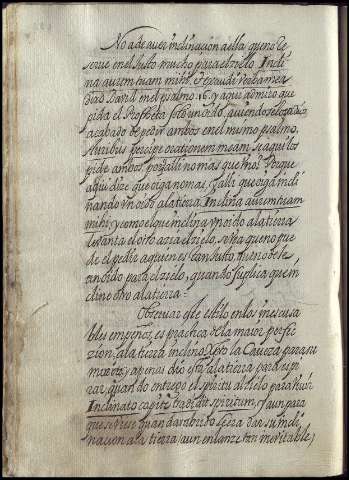 No ade aver inclinacion a ella que no le
serve en el susto mucho para el zielo. Indi
na aurem tuam mihi, et exaudi verba mea
dezia David en el psalmo .16. y aqui admiro que
pida el Propheta solo un oido, aviendo
acabado de pedir ambos en el mismo psalmo,
Auribus percipe orationem meam si aqui los
pide ambos, por alli no mas que uno? Porque
aqui dize que oiga no mas, y alli que oiga incli
nando un oido a la tierra, Inclina aurem tuam
mihi, y como el que inclina un oido a la tierra
levanta el otro azia el zielo, se ve que no pue
de el pedir a quien es tan justo, menos de te
un oido para el zielo, quando suplica que in
cline otro a la tierra.
Observar este estilo en los inescusa
bles empeños, es practica de la maior perfec
zion, a la tierra inclino Xpto la Caveza para su
muerte, y apenas dio esta a la tierra para espi
rar, quando entrego el spiritu al zielo para vivir
Inclinato capite tradidit spiritum, y aun para
que se viese quan de averdad fuera dar su incli
nacion a la tierra (aun en lanze tan inevitable)